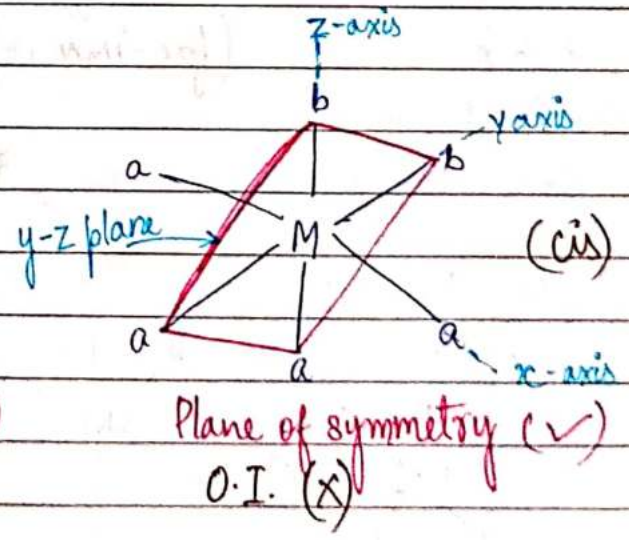 z-axis
b
y axis
a
b
y-z plane
M
(cis)
a
a
a
x-axis
Plane of symmetry (✓)
O.I. (X)